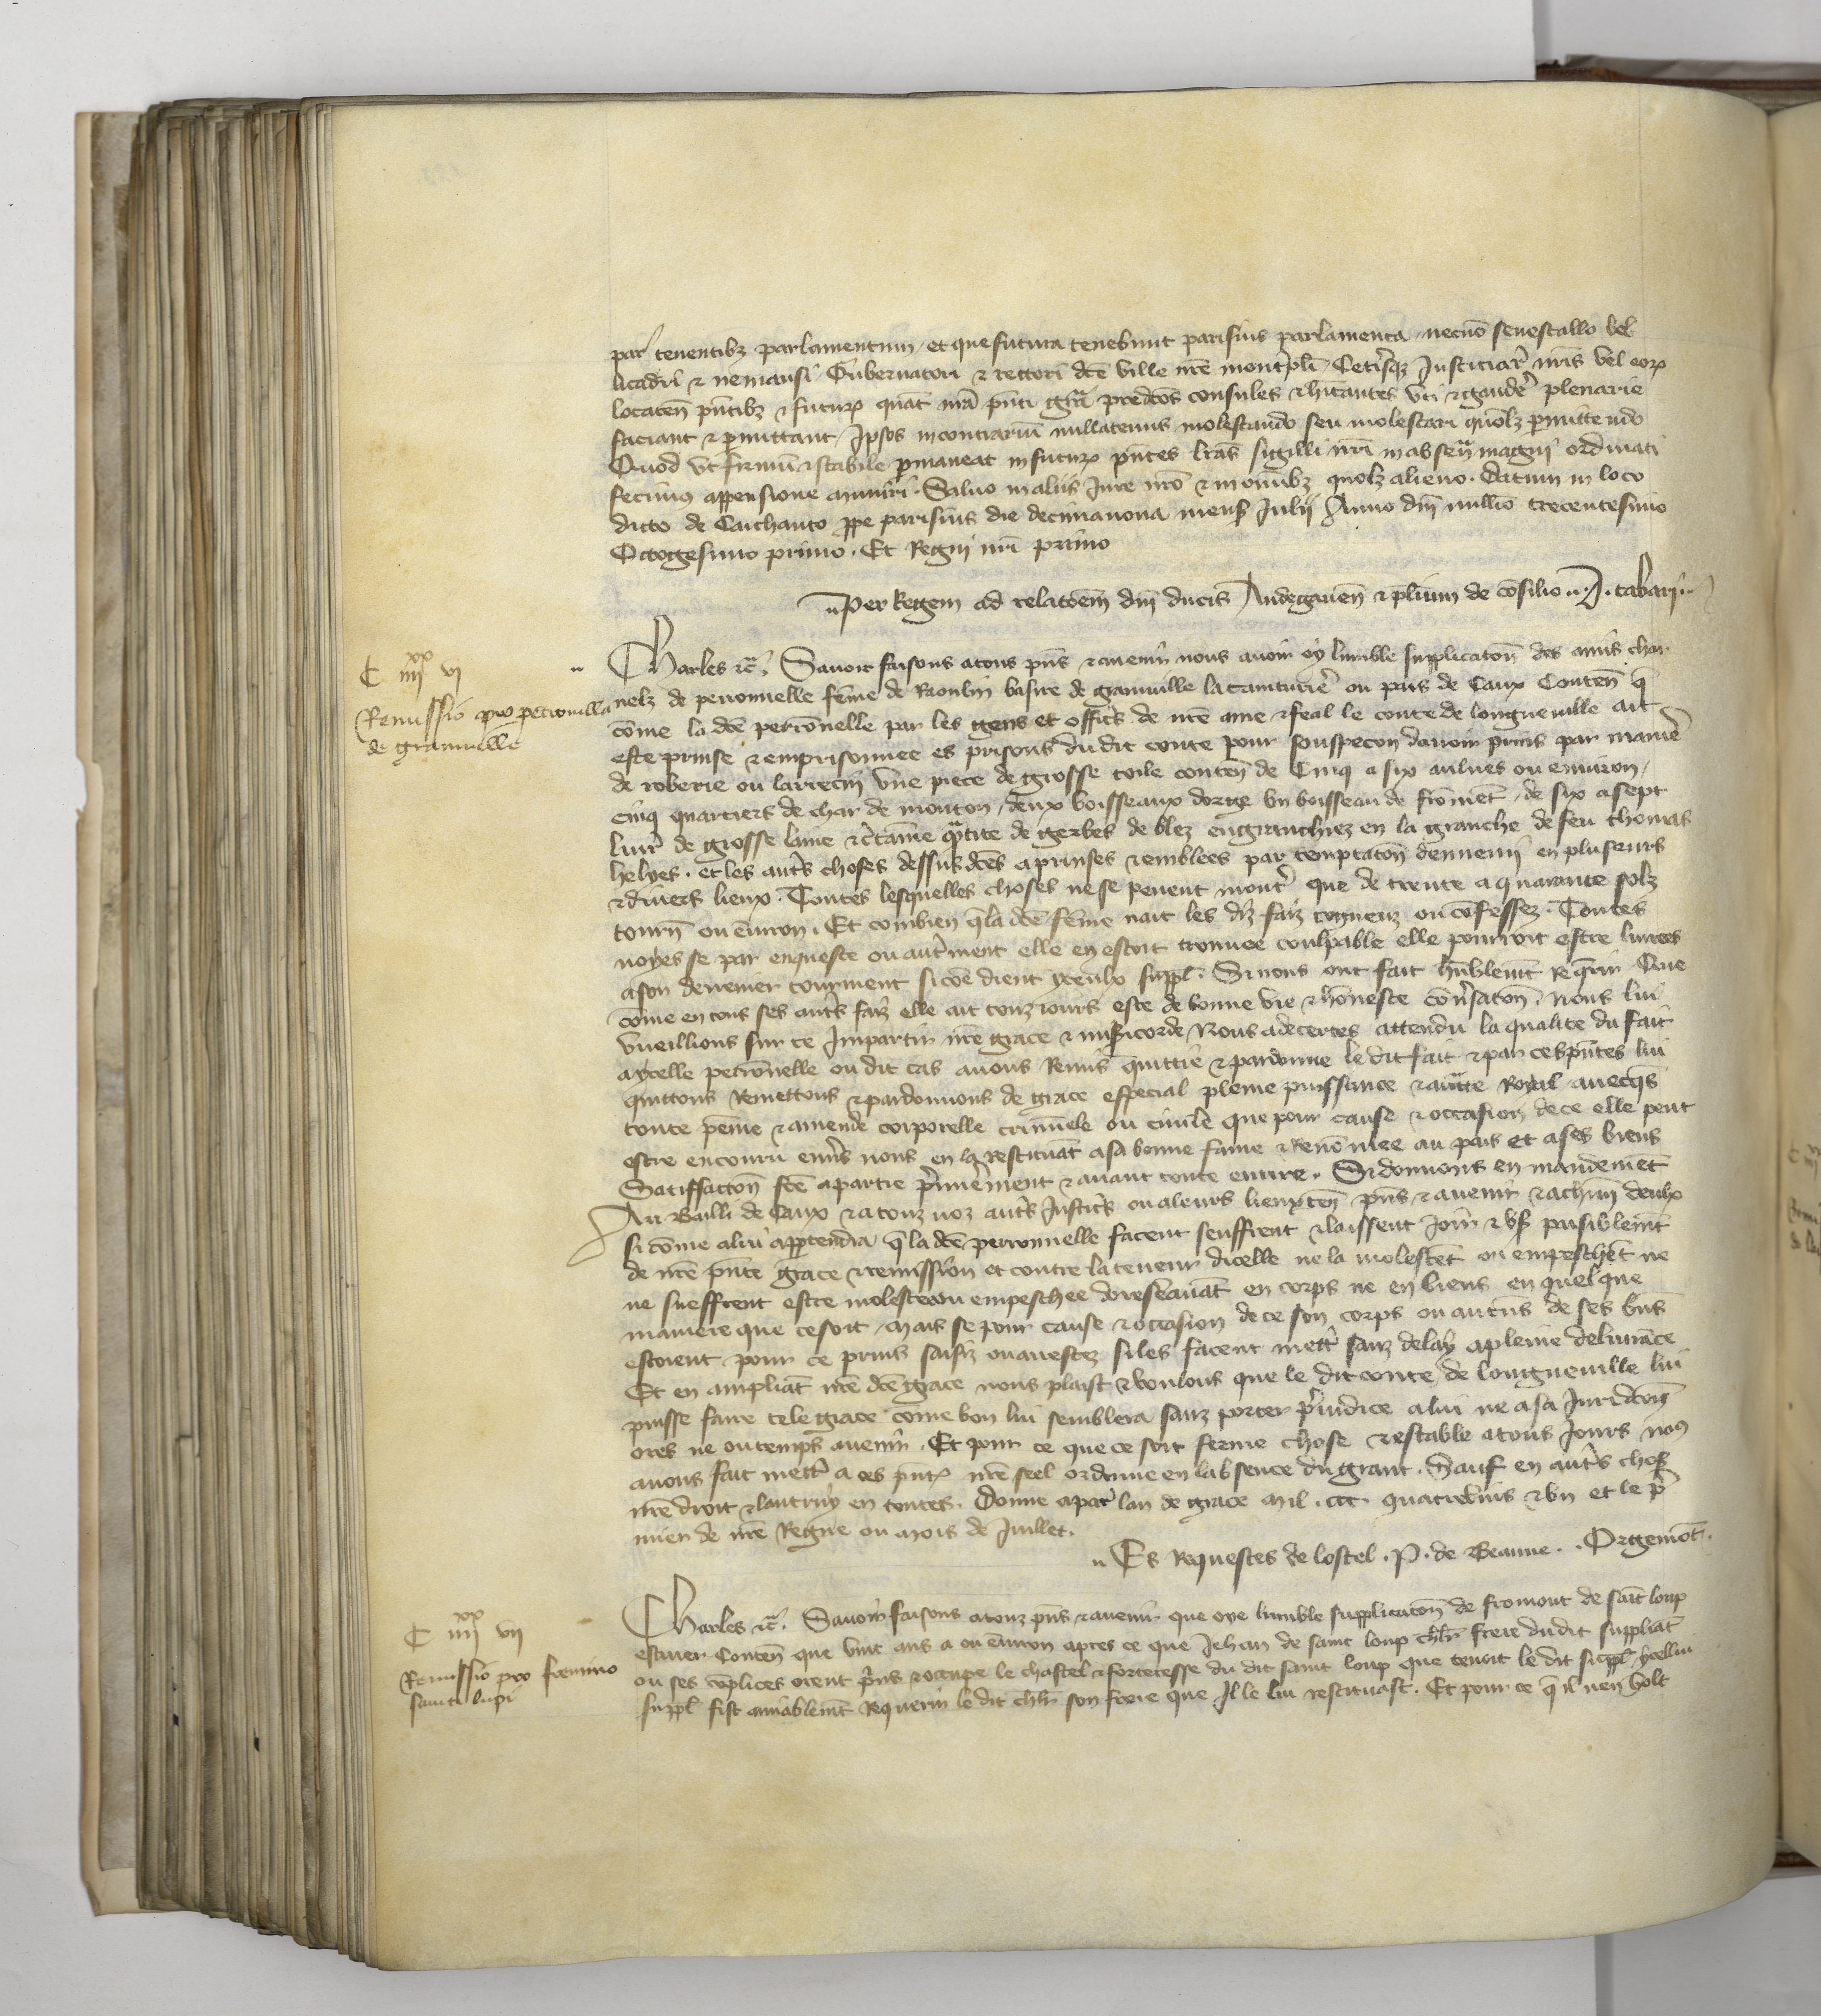 par tenentibz parlamentum et que futura tenebunt parisius parlamenta necnō senescallo bel
licadri & nemausi Gubernatori & rectori dc̄e ville nr̄e montp̄li Cetisq̄ Justiciar nr̄is vel eorꝝ
locaten̄ pn̄tibz & futurꝝ quat̄ nr̄a pn̄ti gr̄a predcōs consules & hitantes uti & gaudē plenarie
faciant & p̱mittant Ipsos incontrariū nullatenus molestando seu molestari quolz p̱mittendo
Quod ut firmū & stabile p̱maneat in futurꝝ pn̄tes lr̄as sigilli nr̄i in absen̄ magni ordinati
fecimus appensione muniri . Saluo in aliis Jure nr̄o & in omībz quolz alieno . Datum in loco
dicto de Caichanto ppe parisius die decimanona mens̄ Julii Anno dn̄i millio trecentesimo
Octogesimo primo . Et Regni nr̄i primo
Per Regem ad relatōem dn̄i ducis Andegauen̄ & pliūm de cōsilio .. J . tabari ..
C iiij xx vj
Remissio pro petronilla
de granuille
Charles &c̄ . Sauoir faisons a tous pn̄s & auenir nous auoir oy lumble supplicatōn des amis char
nelz de perronnelle fēme de Raoulin basire de grainuille la tainturiē ou pais de Caux Conten̄ q̄
cōme la dcē perrōnelle par les gens et offic̄s de nr̄e ame & feal le conte de longueuille ait
este prinse & emprisonnee es prisons du dit conte pour souspecon dauoir prins par maniē
de roberie ou larrecin vne piece de grosse toile conten̄ de Cinq a six aulnes ou enuiron /
cinq quartiers de char de mouton / deux boisseaux dorge vn boisseau de fromēt / de six a sept
liur̄ de grosse laine & c̄taine q̄tite de gerbes de blez engranchiez en la granche de feu thomas
helyes . et les aut̄s choses dessus dc̄es a prinses & emblees par temptatōn dennemi en pluseurs
& diuers lieux . Toutes lesquelles choses ne se peuent mont̄ que de trente a quarante solz
tourn̄ ou ēuiron . Et combien q̄ la dcē fēme nait les diz faiz cogneuz ou cōfessez . Toutes
uoyes se par enqueste ou autm̄ent elle en estoit trouuee coulpable elle pourroit estre liuree
a son derrenier tourment si cōe dient yceulx suppl̄ . Si nous ont fait hūblemt̄ req̄rir Que
cōme en tous ses aut̄s faiz elle ait touz iours este de bonne vie & hōneste cōu̓satōn . nous lui
vueillions sur ce Impartir nr̄e grace & misicorde Nous adecertes attendu la qualite du fait
a ycelle petrōnelle ou dit cas auons Remis quittie & pardonne le dit fait & par ces pn̄tes lui
quittons Remettons & pardonnons de grace especial pleine puissance & auctē Royal auecq̄s
toute peīne & amende corporelle criminele ou ciuile que pour cause & occasion de ce elle peut
estre encouru enu̓s nous en la restituāt a sa bonne fame & Renōmee au pais et a ses biens
Satiffacton̄ fcē a partie p̄mieremēt & auant toute euure . Si donnons en mandemēt
Au Bailli de Caux & a touz noz aut̄s Justic̄s ou a leurs lieuxten̄ pn̄s & auenir & a chūn deulx
si cōme a lui apptendra q̄ la dcē perronnelle facent seuffrent & laissent Joir & vs̄ paisiblemt̄
de nr̄e pn̄te grace & remission et contre la teneur dicelle ne la molestēt ou empeschēt ne
ne sueffrent estre molestee ou empeschee doresenauāt en corps ne en biens en quelque
maniere que ce soit / mais se pour cause & occasion de ce son corps ou aucūs de ses biēs
estoient pour ce prins saisiz ou arrestez si les facent mettr̄ sanz delay a pleine deliurāce
Et en ampliāt nr̄e dcē grace nous plaist & voulons que le dit conte de longueuille lui
puisse faire tele grace cōme bon lui semblera sanz porter p̄iudice a lui ne a sa Juridicōn
ores ne ou temps auenir . Et pour ce que ce soit ferme chose & estable a tous Jours noꝰ
auons fait mettr̄ a ces pn̄tꝭ nr̄e seel ordonne en labsence du grant . Sauf en aut̄s chos̄
nr̄e droit & lautruy en toutes . Donne a par̄ lan de grace mil . ccc quatreuins & vn et le p̄
mier de nr̄e Regne ou mois de Juillet .
Es Requestes de lostel . P . de Beaune . . Orgemōt .
C iiij xx vij
Remissio pro fromino
sancti lupi
Charles &c̄ . Sauoir faisons a touz pn̄s & auenir que oye lumble supplicacōn de fromont de saīt loup
escuier Conten̄ que vint ans a ou ēuiron apres ce que Jehan de saint loup chl̄r frere du dit suppliāt
ou ses cōplices orent p̄ns & occupe le chastel & forteresse du dit saint loup que tenoit le dit suppl̄ ycellui
suppl̄ fist amiablemt̄ Requerir le dit chl̄r son frere que Il le lui restituast . Et pour ce q̄ il nen volt